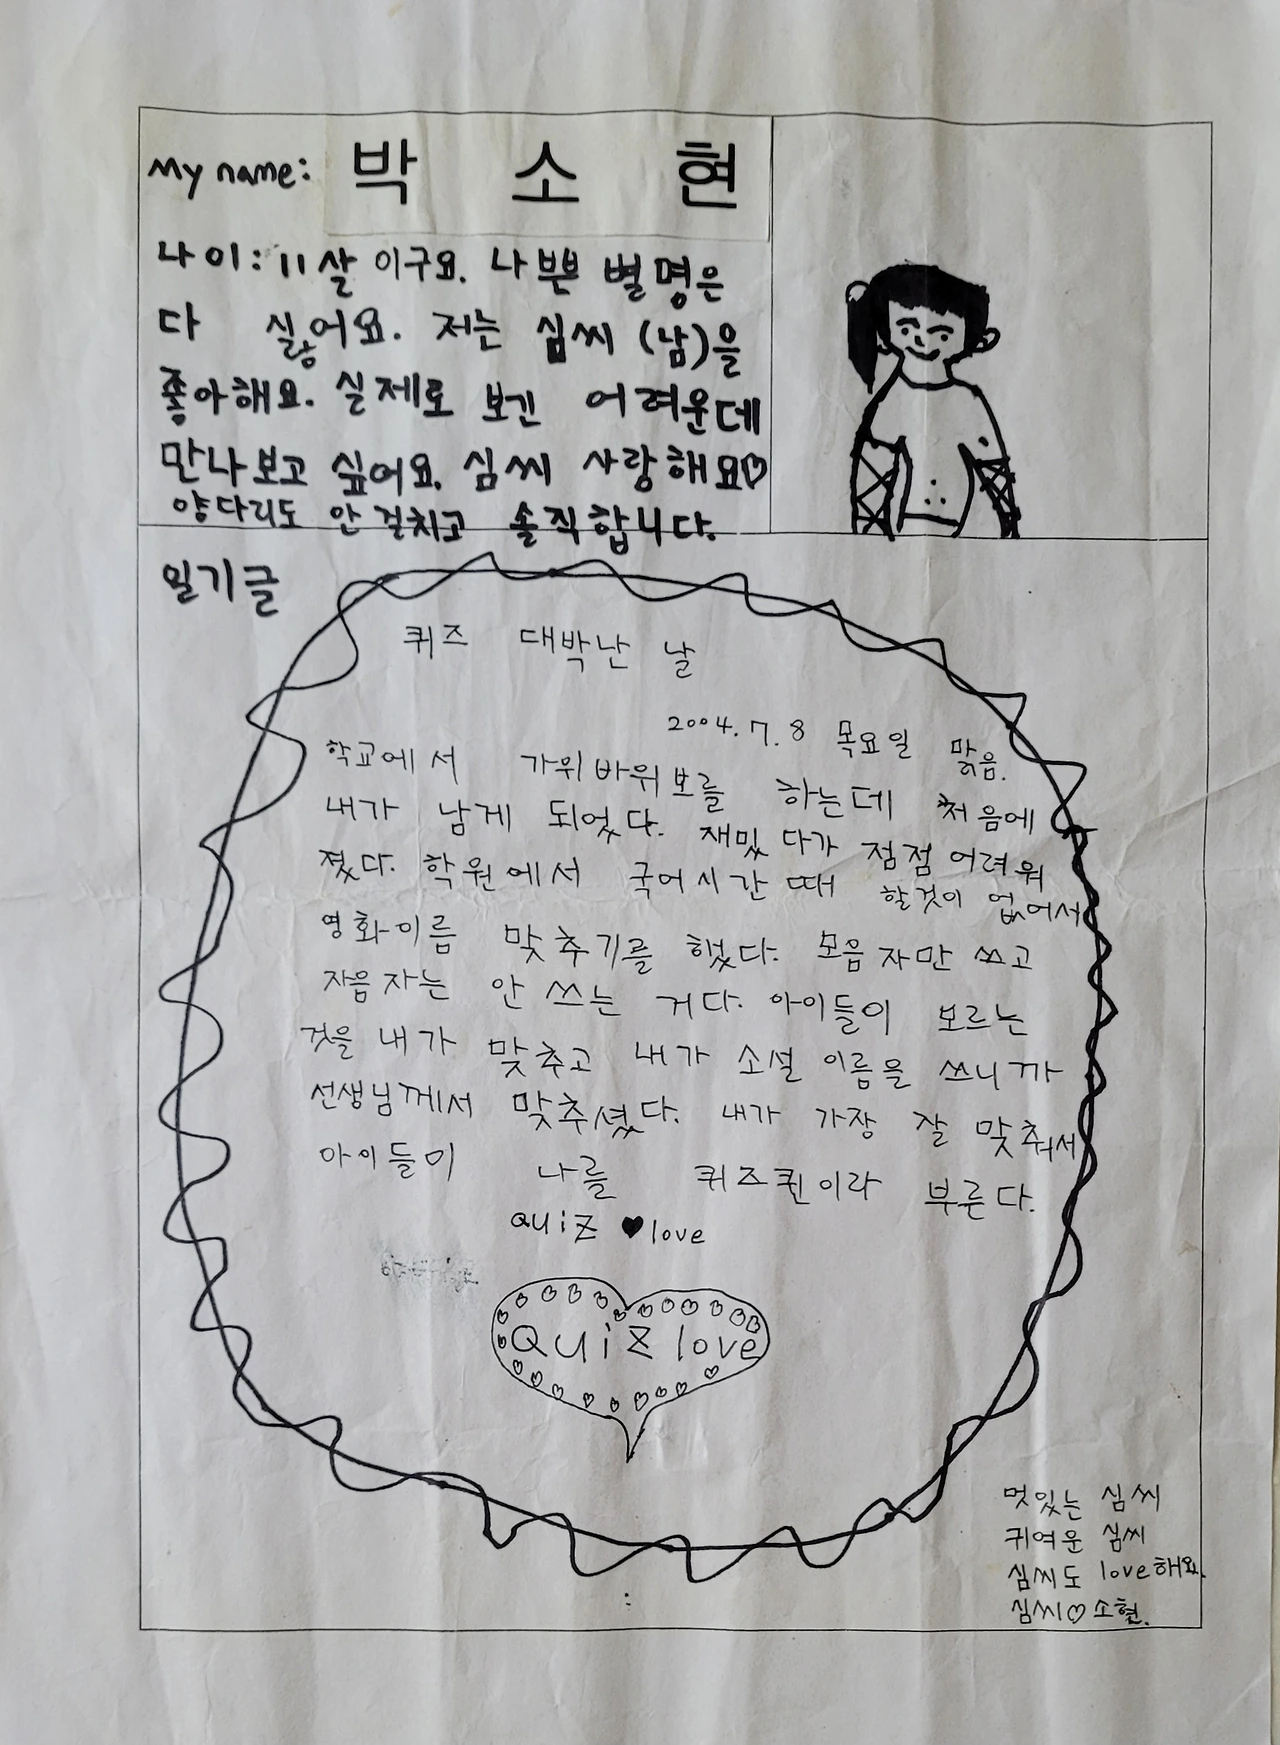 My name: 박 소 현
나이: 11살 이구요. 나쁜 별명은
다 싫어요. 저는 심씨 (남)을
좋아해요. 실제로 보긴 어려운데
만나보고 싶어요. 심씨 사랑해요♡
양다리도 안 걸치고 솔직합니다.
일기글
퀴즈 대박난 날
2004. 7. 8 목요일 맑음.
학교에서 가위바위보를 하는데 처음에
내가 남게 되었다. 재밌다가 점점 어려워
졌다. 학원에서 국어시간 때 할것이 없어서
영화이름 맞추기를 했다. 모음자만 쓰고
자음자는 안 쓰는 거다. 아이들이 모르는
것을 내가 맞추고 내가 소설 이름을 쓰니까
선생님께서 맞추셨다. 내가 가장 잘 맞춰서
아이들이 나를 퀴즈퀸이라 부른다.
QUiZ ♥love
QUiZ love
멋있는 심씨
귀여운 심씨
심씨도 love해요.
심씨♡소현.